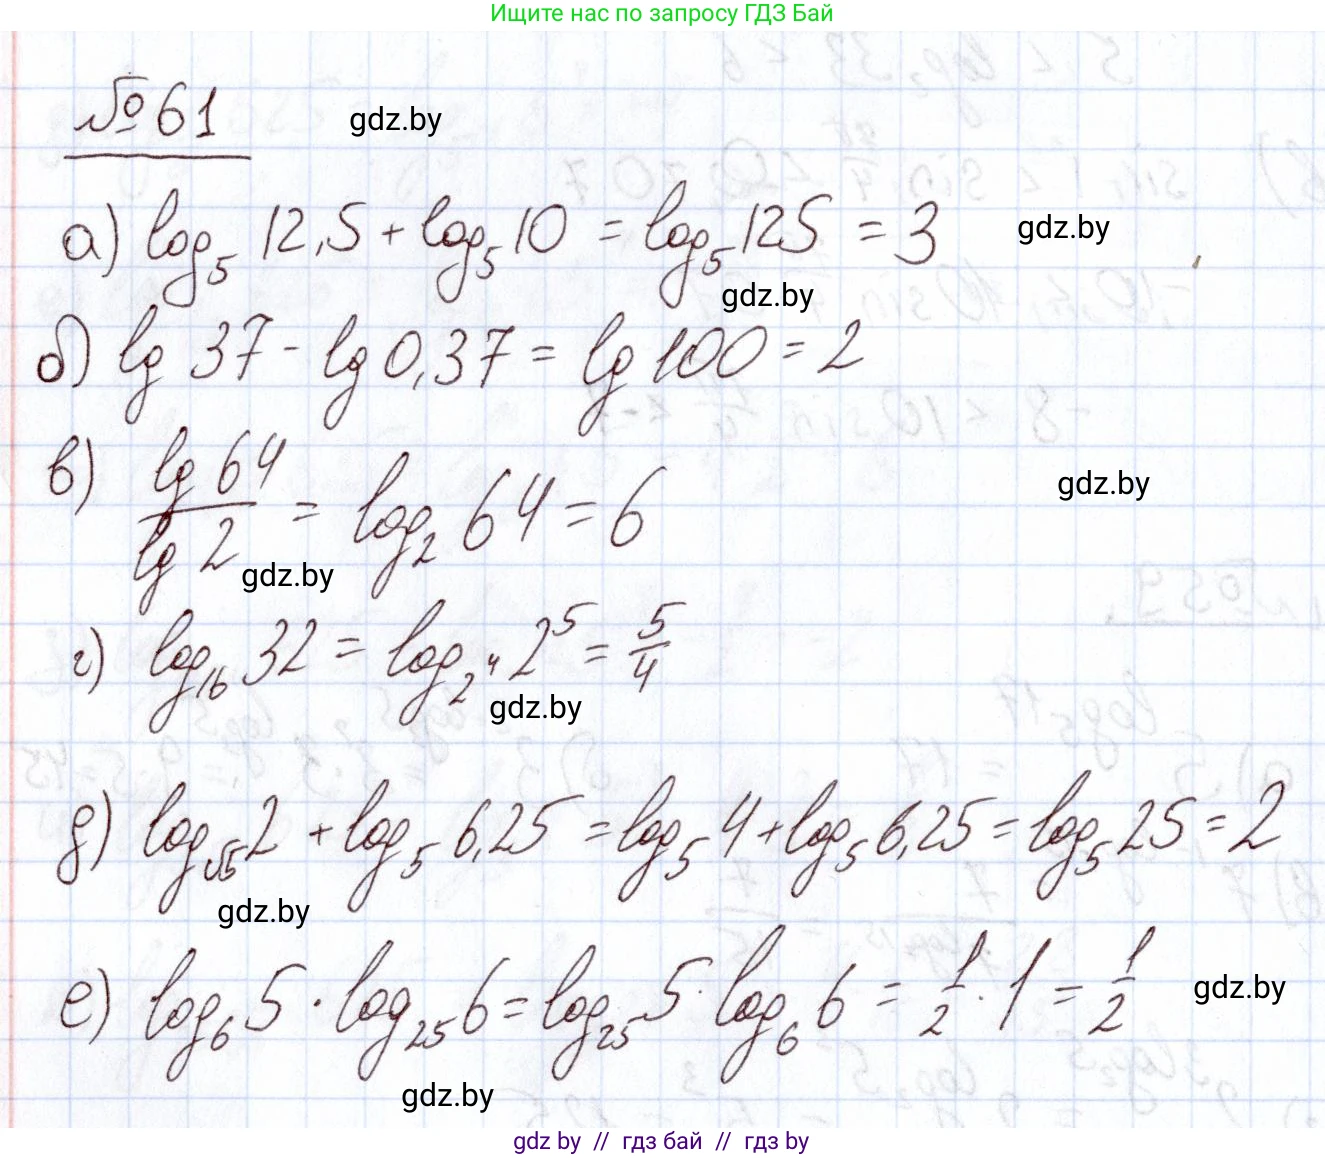 Ищите нас по запросу ГДЗ Бай
№61 gdz.by
а) log₅ 12,5 + log₅ 10 = log₅ 125 = 3 gdz.by
gdz.by
б) lg 37 - lg 0,37 = lg 100 = 2
в) lg 64 / lg 2 = log₂ 64 = 6 gdz.by
gdz.by
г) log₁₆ 32 = log_{2⁴} 2⁵ = 5/4
gdz.by
д) log_{√5} 2 + log₅ 6,25 = log₅ 4 + log₅ 6,25 = log₅ 25 = 2
gdz.by
е) log₆ 5 · log₂₅ 6 = log₂₅ 5 · log₆ 6 = 1/2 · 1 = 1/2 gdz.by
gdz.by
gdz by // гдз бай // гдз by